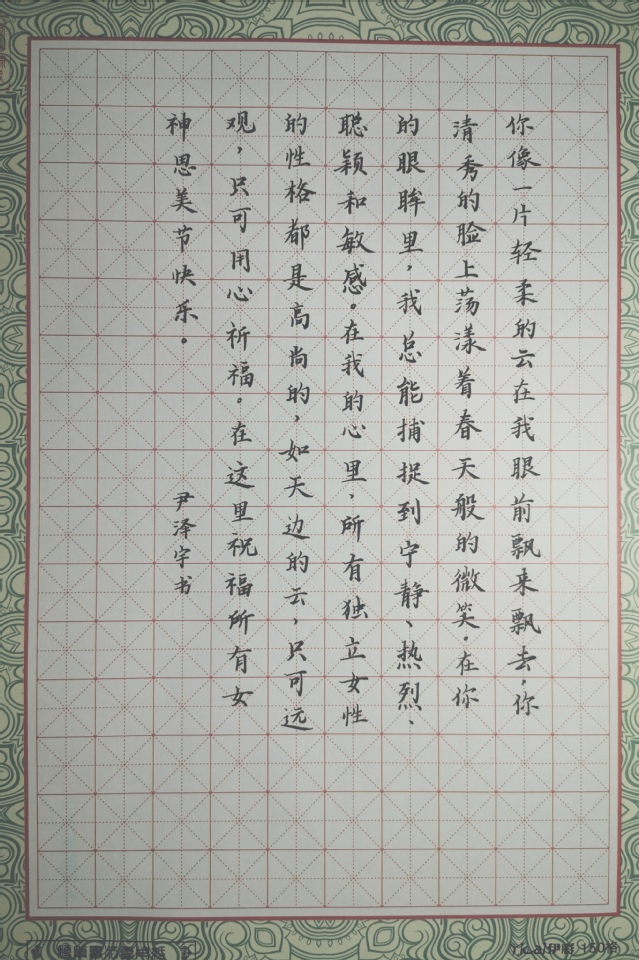 你像一片轻柔的云在我眼前飘来飘去，你
清秀的脸上荡漾着春天般的微笑。在你
的眼眸里，我总能捕捉到宁静、热烈、
聪颖和敏感。在我的心里，所有独立女性
的性格都是高尚的，如天边的云，只可远
观，只可用心祈福。在这里祝福所有女
神思美节快乐。
尹泽宇书